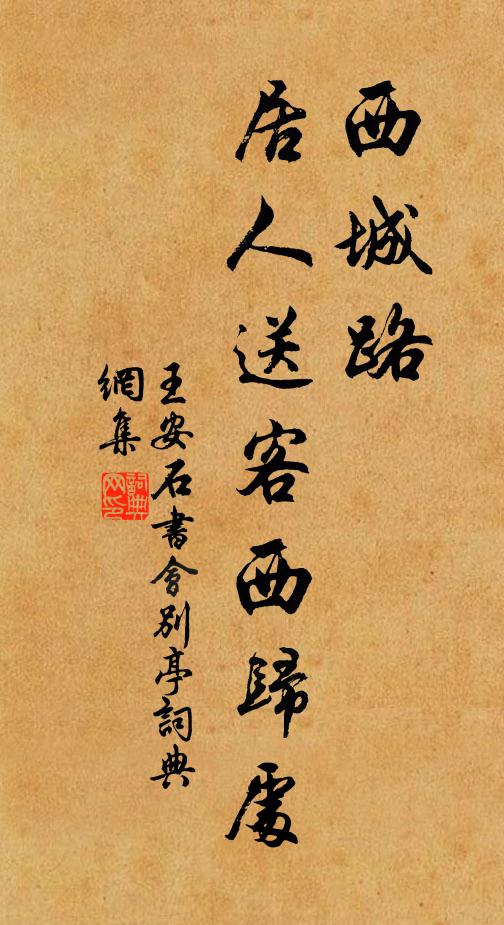 西城路
居人送客西歸處
王安石書會別亭詞典
網集
詞典
网印